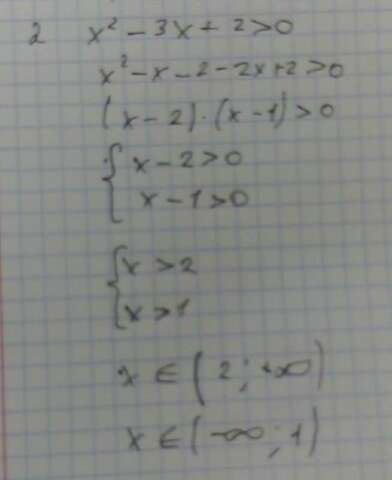 2 x² - 3x + 2 > 0
x² - x - 2 - 2x + 2 > 0
(x - 2) · (x - 1) > 0
{ x - 2 > 0
x - 1 > 0
{ x > 2
x > 1
x ∈ (2; +∞)
x ∈ (-∞; 1)